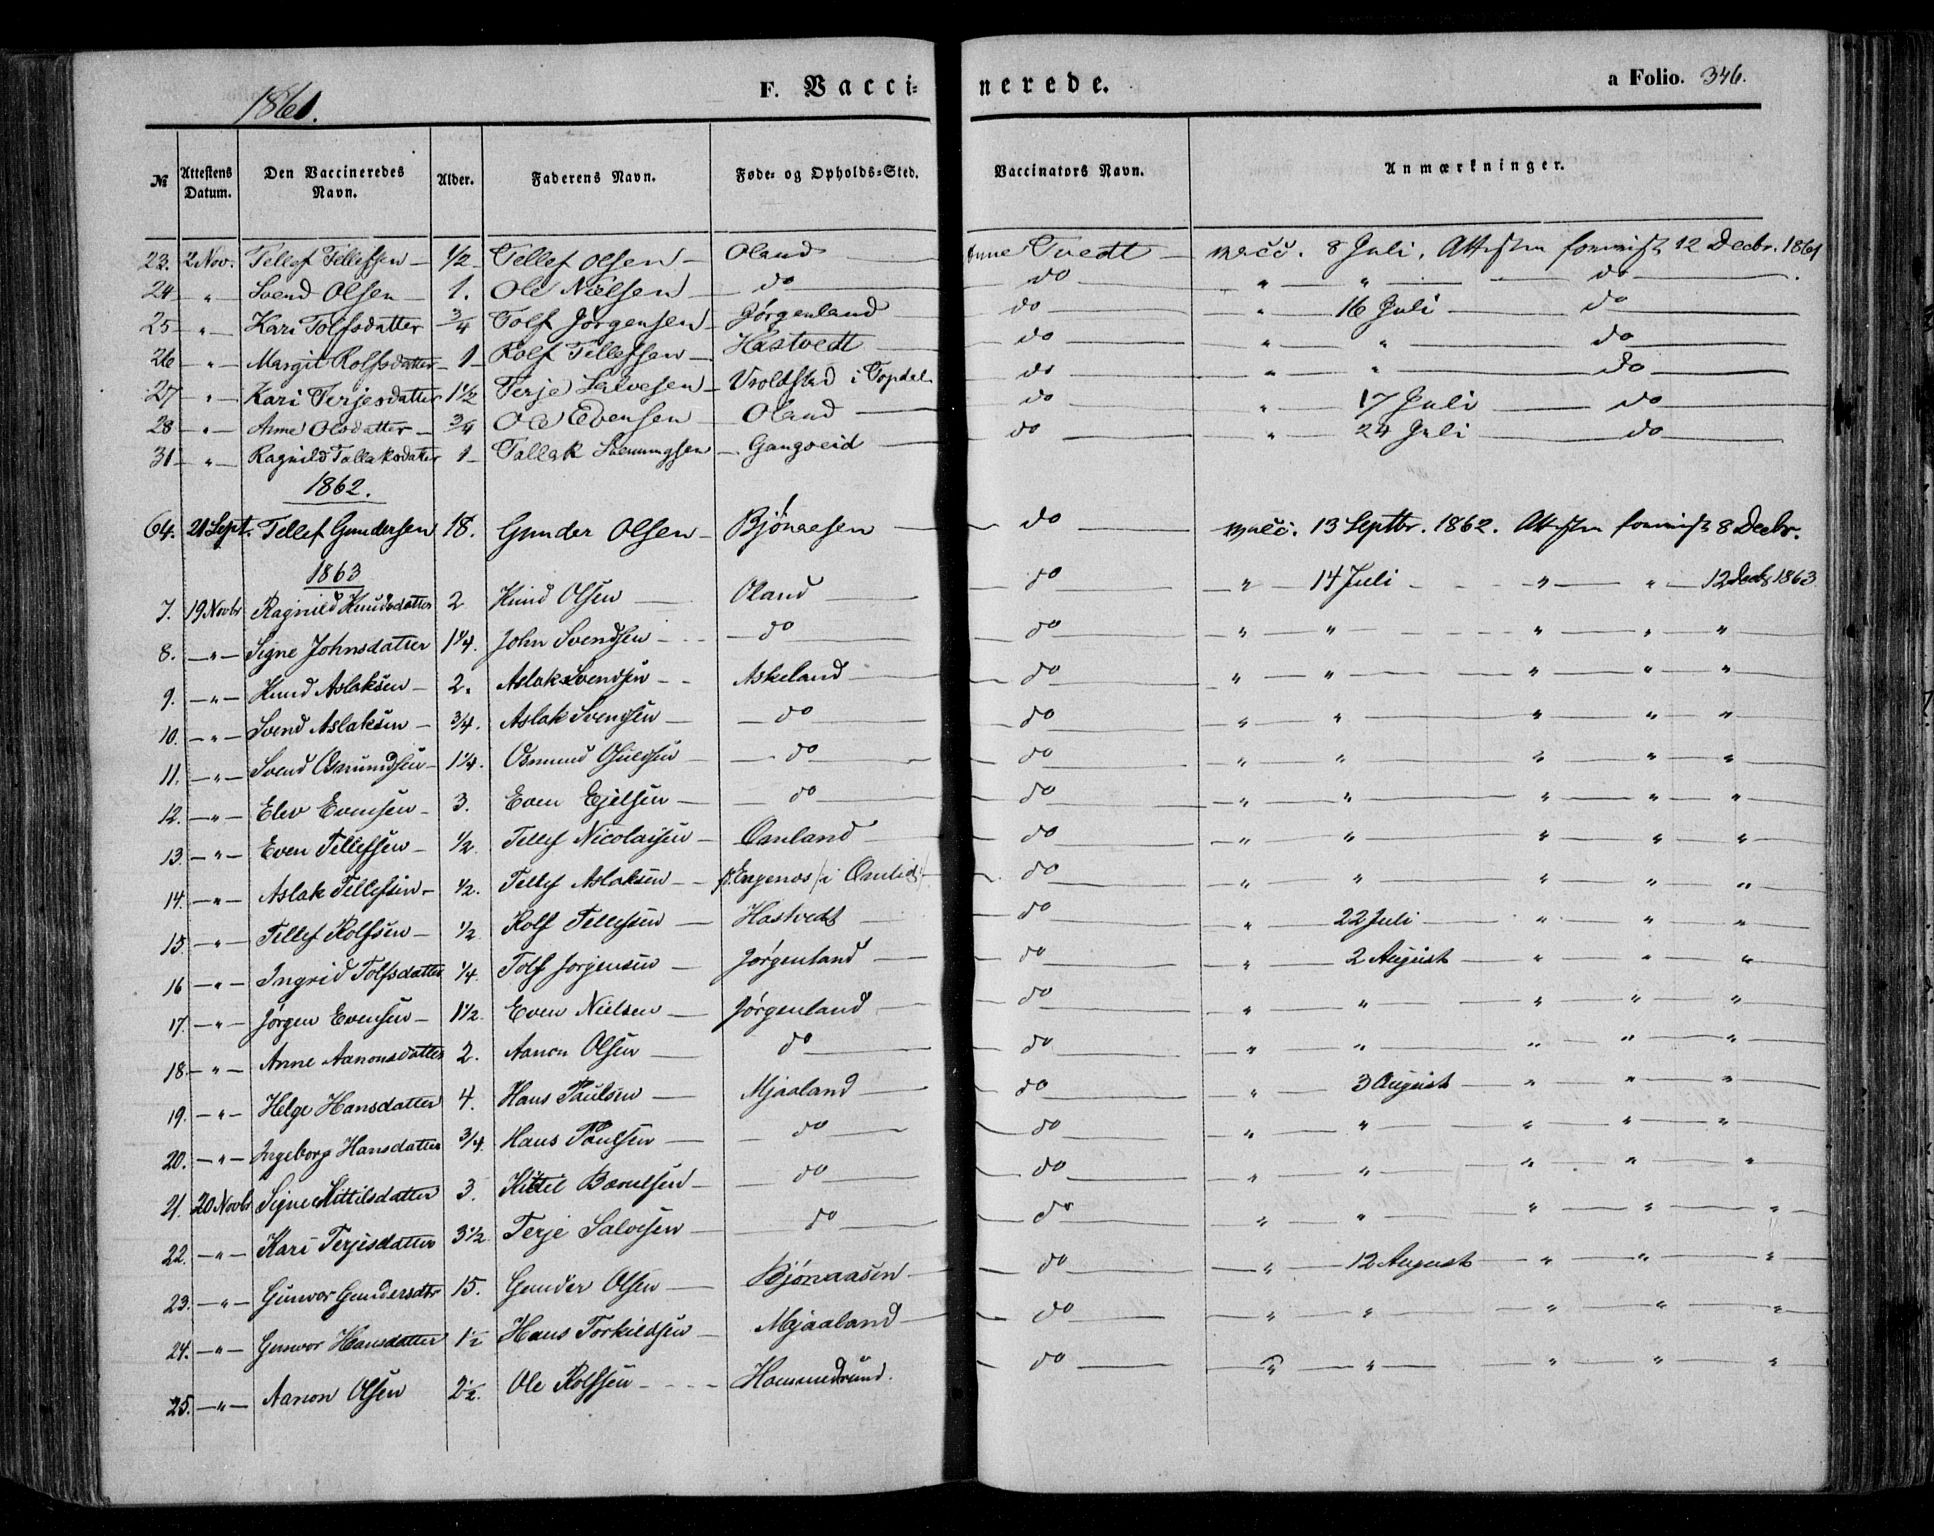 1861. F. Vacci- nerede. a Folio. 346.
№ Attestens Datum. Den Vaccineredes Navn. Alder. Faderens Navn. Føde- og Opholds-Sted. Vaccinators Navn. Anmærkninger.
23. 2 Nov. Tellef Tellefsen 1/2 Tellef Olsen Oland Anne Tvedt vacc. 8 Juli. Attesten forevist 12 Decbr. 1861
24 " Svend Olsen 1. Ole Nielsen do do " " do
25 " Kari Tolfsdatter 3/4 Tolf Jørgensen Jørgenland do " 16 Juli do
26 " Margit Rolfsdatter 1 Rolf Tellefsen Hastvedt do " " do
27 " Kari Terjesdatter 1 1/2 Terje Salvesen Uvoldstad i Topdal do " " do
28 " Anne Olsdatter 3/4 Ole Evensen Oland do " 17 Juli do
31 " Ragnild Tallaksdatter 1 Tallak Svenungsen Gangveid do " 24 Juli do
1862.
64. 21 Sept. Tellef Gundersen 18. Gunder Olsen Bjönaasen do vacc. 13 Septbr. 1862. Attesten forevist 8 Decbr.
1863
7. 19 Novbr Ragnild Knudsdatter 2 Knud Olsen Oland do " 14 Juli " " 12 Decbr 1863
8. " Signe Johnsdatter 1 1/4. John Svendsen do do " " " " "
9. " Knud Aslaksen 2. Aslak Svendsen Askeland do " " " " "
10. " Svend Aslaksen 3/4. Aslak Svendsen do do " " " " "
11. " Svend Osmundsen 1 1/4. Osmund do do " " " " "
12. " Elev Evensen 3. Even Ejelsen do do " " " " "
13. " Even Tellefsen 1/2. Tellef Nicolaisen Omland do " " " " "
14. " Aslak Tellefsen 1/2. Tellef Aslaksen Engenes i Omlid do " " " " "
15. " Tellef Rolfsen 1/2 Rolf Tellefsen Hastvedt do " 22 Juli " " "
16 " Ingrid Tolfsdatter 1/4. Tolf Jorgensen Jørgenland do " 2 August " " "
17. " Jørgen Evensen 1 1/2. Even Nielsen Jørgenland do " " " " "
18. " Anne Aanonsdatter 2. Aanon Olsen do do " " " " "
19. " Helge Hansdatter 4. Hans Paulsen Mjaaland do " 3 August " " "
20. " Ingeborg Hansdatter 3/4. Hans Paulsen do do " " " " "
21. 20 Novbr Signe Kittilsdatter 3. Kittil do do " " " " "
22. " Kari Terjesdatter 3 1/2 Terje Salvesen do do " " " " "
23. " Gunvor Gundersdtr 15. Gunder Olsen Bjönaasen do " 12 August " " "
24. " Gunvor Hansdatter 1 1/2 Hans Torkildsen Mjaaland do " " " " "
25. " Aanon Olsen 2 1/2. Ole Rolfsen Hommedrund. do " " " " "